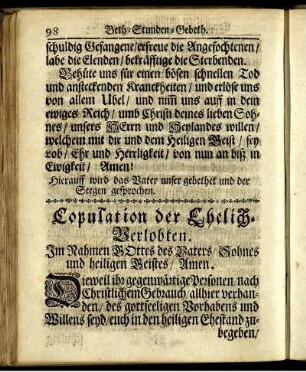 98 Beth-Stunden-Gebeth.
schuldig Gefangene/ erfreue die Angefochtenen/
labe die Elenden/ bekräfftige die Sterbenden.
Behüte uns für einen bösen schnellen Tod
und ansteckenden Kranckheiten/ und erlöse uns
von allem Ubel/ und nim̃ uns auff in dem
ewiges Reich/ umb Christi deines lieben Soh-
nes/ unsers HErrn und Heylandes willen/
welchem mit dir und dem Heiligen Geist/ sey
Lob/ Ehr und Herrligkeit/ von nun an biß in
Ewigkeit/ Amen!
Hierauff wird das Vater unser gebethet und der
Seegen gesprochen.
Copulation der Ehelich-
Verlobten.
Im Nahmen GOttes des Vaters/ Sohnes
und heiligen Geistes/ Amen.
Dieweil ihr gegenwärtige Personen/ nach
Christlichem Gebrauch/ allhier verhan-
den/ des gottseeligen Vorhabens und
Willens seyd/ euch in den heiligen Ehestand zu-
begeben/